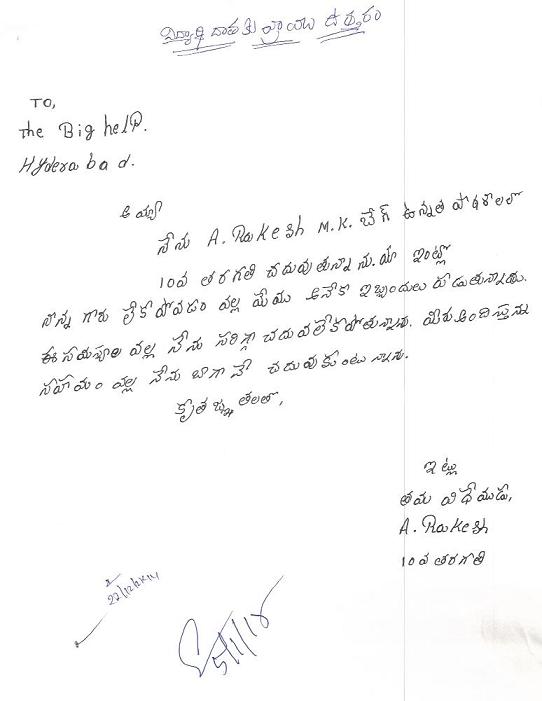 విద్యార్థి దాతకు వ్రాయు ఉత్తరం
TO,
the Big help.
Hyderabad.
అయ్యా
నేను A. Rakesh M.K. బేగ్ ఉన్నత పాఠశాలలో
10వ తరగతి చదువుతున్నాను. మా ఇంట్లో
నాన్న గారు లేకపోవడం వల్ల మేము అనేక ఇబ్బందులు పడుతున్నాము.
ఈ సమస్యల వల్ల నేను సరిగ్గా చదువలేకపోతున్నాను. మీరు అందిస్తున్న
సహాయం వల్ల నేను బాగానే చదువుకుంటున్నాను.
కృతజ్ఞతలతో,
ఇట్లు
తమ విధేయుడు,
A. Rakesh
10వ తరగతి
22/12/2K14